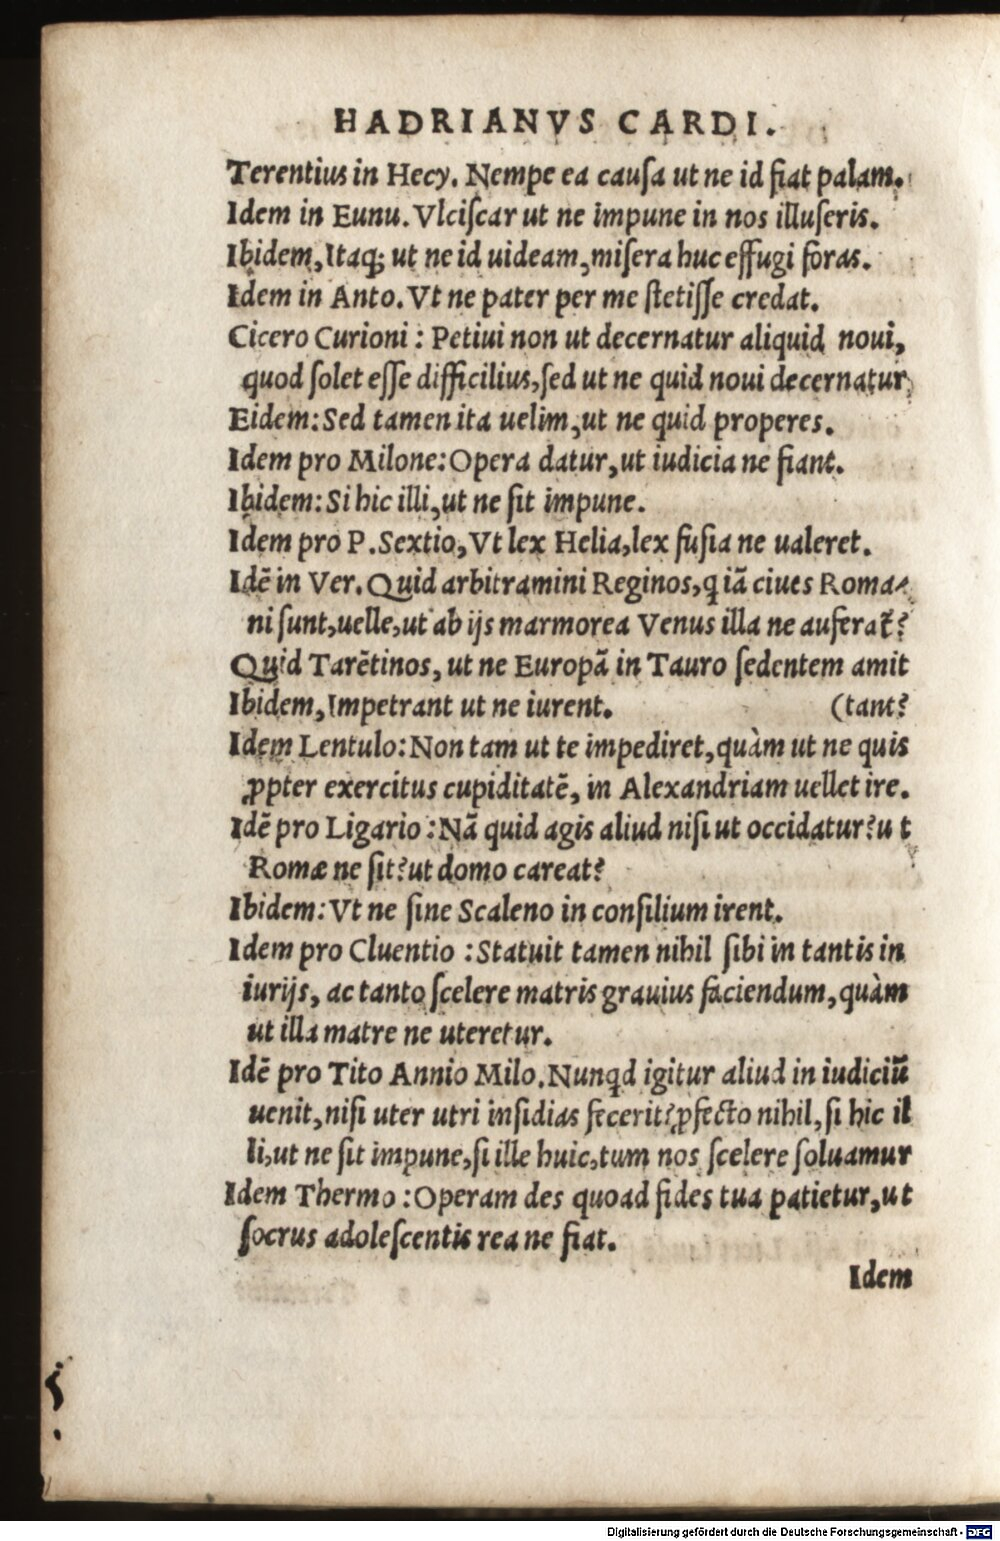 HADRIANVS CARDI.
Terentius in Hecy. Nempe ea cauſa ut ne id fiat palam.
Idem in Eunu. Vlciſcar ut ne impune in nos illuſeris.
Ibidem, Itaq; ut ne id uideam, miſera huc effugi foras.
Idem in Anto. Vt ne pater per me ſtetiſſe credat.
Cicero Curioni : Petiui non ut decernatur aliquid noui,
quod ſolet eſſe difficilius, ſed ut ne quid noui decernatur,
Eidem: Sed tamen ita uelim, ut ne quid properes.
Idem pro Milone: Opera datur, ut iudicia ne fiant.
Ibidem: Si hic illi, ut ne ſit impune.
Idem pro P. Sextio, Vt lex Helia, lex fuſia ne ualeret.
Idē in Ver. Quid arbitramini Reginos, q iā ciues Roma-
ni ſunt, uelle, ut ab ijs marmorea Venus illa ne auferat̄?
Quid Tarētinos, ut ne Europā in Tauro ſedentem amit
Ibidem, Impetrant ut ne iurent. (tant?
Idem Lentulo: Non tam ut te impediret, quàm ut ne quis
ꝓpter exercitus cupiditatē, in Alexandriam uellet ire.
Idē pro Ligario : Nā quid agis aliud niſi ut occidatur? u t
Romæ ne ſit? ut domo careat?
Ibidem: Vt ne ſine Scaleno in conſilium irent.
Idem pro Cluentio : Statuit tamen nihil ſibi in tantis in
iurijs, ac tanto ſcelere matris grauius faciendum, quàm
ut illa matre ne uteretur.
Idē pro Tito Annio Milo. Nunqd igitur aliud in iudiciū
uenit, niſi uter utri inſidias fecerit? ꝓfecto nihil, ſi hic il
li, ut ne ſit impune, ſi ille huic, tum nos ſcelere ſoluamur
Idem Thermo : Operam des quoad fides tua patietur, ut
ſocrus adoleſcentis rea ne fiat.
Idem
Digitalisierung gefördert durch die Deutsche Forschungsgemeinschaft - DFG